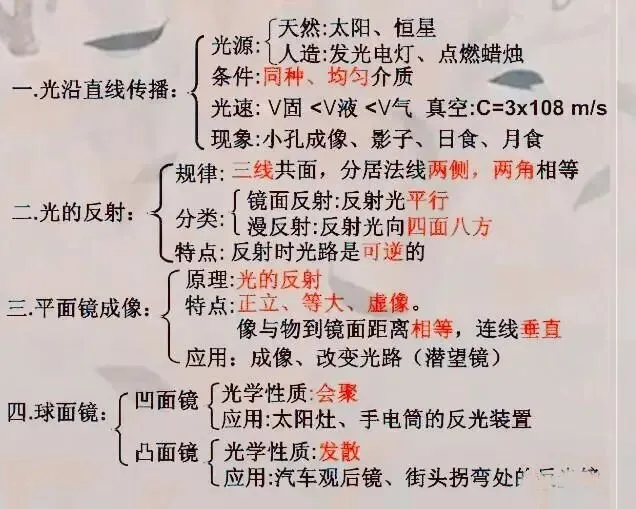 天然:太阳、恒星
光源:
人造:发光电灯、点燃蜡烛
一.光沿直线传播：
条件:同种、均匀介质
光速: V固 <V液 <V气 真空:C=3x108 m/s
现象:小孔成像、影子、日食、月食
规律: 三线共面，分居法线两侧，两角相等
二.光的反射：
分类:
镜面反射:反射光平行
漫反射:反射光向四面八方
特点: 反射时光路是可逆的
原理:光的反射
三.平面镜成像：
特点:正立、等大、虚像。
像与物到镜面距离相等，连线垂直
应用：成像、改变光路（潜望镜）
四.球面镜:
凹面镜
光学性质:会聚
应用:太阳灶、手电筒的反光装置
凸面镜
光学性质:发散
应用:汽车观后镜、街头拐弯处的